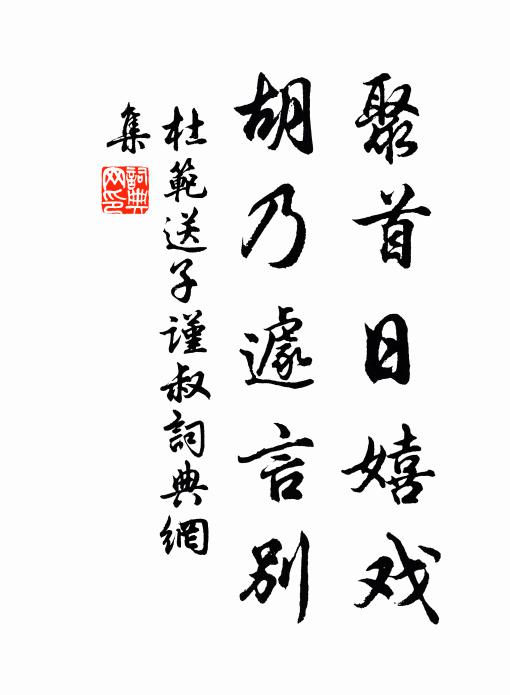 聚首日嬉戏
胡乃遽言别
杜範送子谨叔詞典網
集
詞典网印